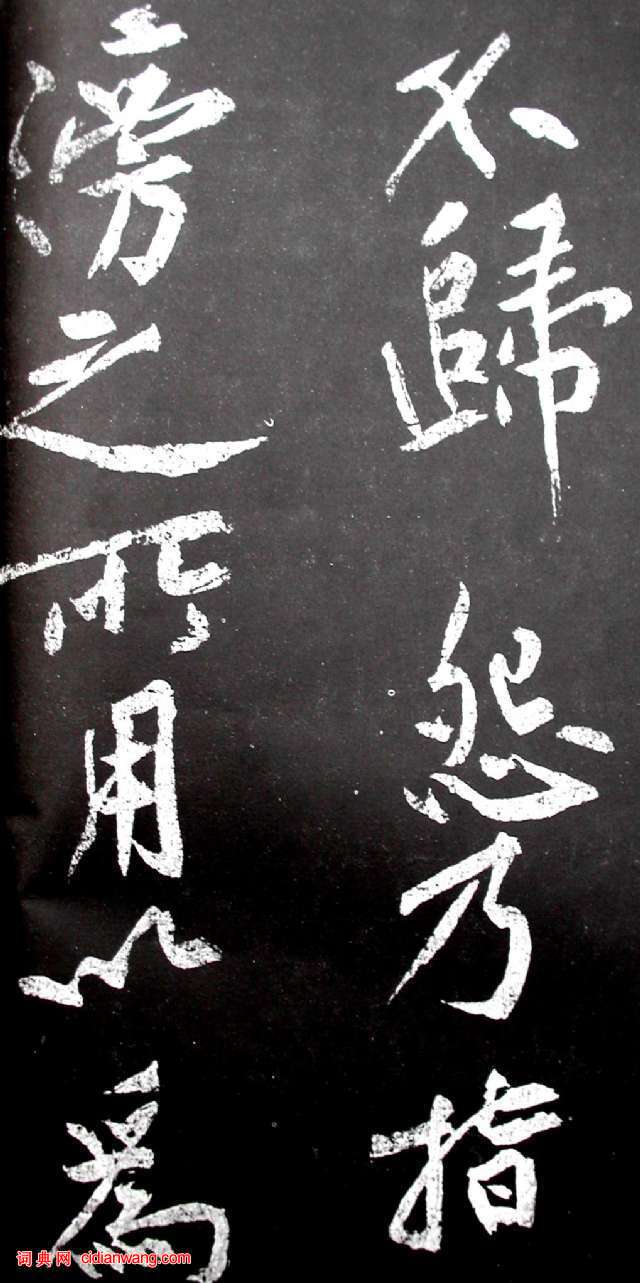 不歸怨乃指
滂之所用以為
词典网 cidianwang.com